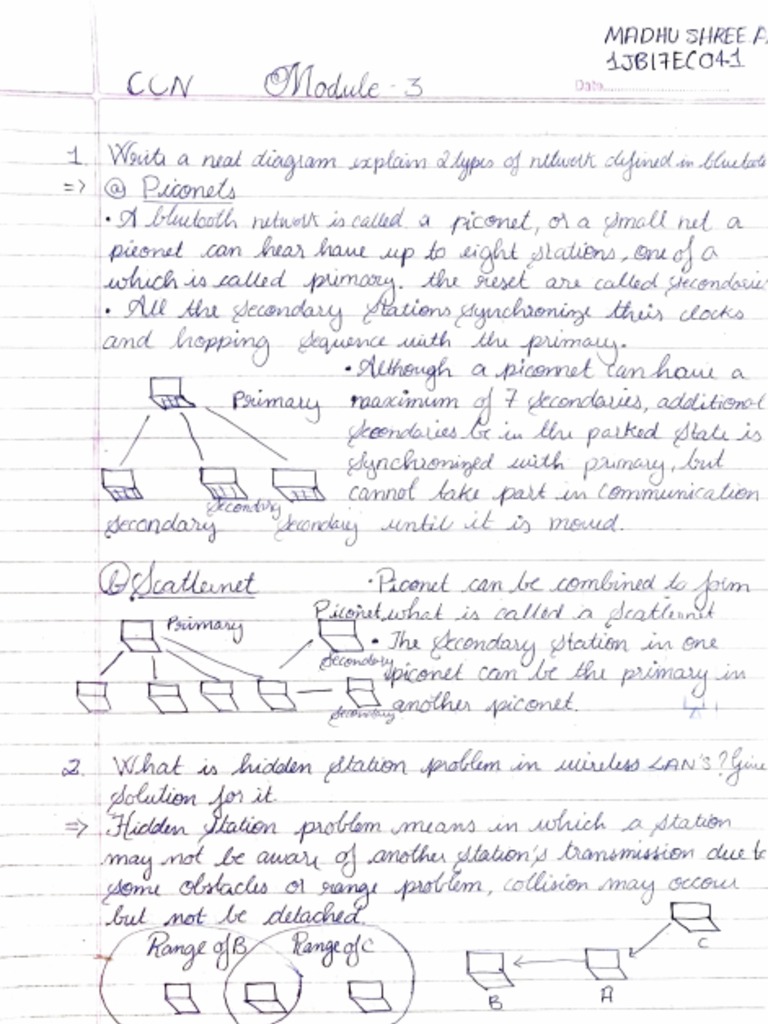 MADHU SHREE.A
1JB17EC041
CCN Module - 3
Date
1. Write a neat diagram explain 2 types of network defined in bluetoot
=> ⓐ Piconets
• A bluetooth network is called a piconet, or a small net a
piconet can hear have up to eight stations, one of a
which is called primary. the reset are called secondaries
• All the secondary stations synchronize their clocks
and hopping sequence with the primary.
• Although a piconnet can have a
Primary
maximum of 7 secondaries, additional
secondaries be in the parked state is
synchronized with primary, but
cannot take part in communication
Secondary
Secondary
Secondary
until it is moved.
ⓑ Scatternet
• Piconet can be combined to form
Piconet what is called a scatternet
Primary
• The secondary station in one
Secondary
piconet can be the primary in
another piconet.
Secondary
2. What is hidden station problem in wireless LAN's? Give
solution for it.
=> Hidden station problem means in which a station
may not be aware of another station's transmission due to
some obstacles or range problem, collision may occour
but not be detached.
Range of B
Range of C
C
B
A